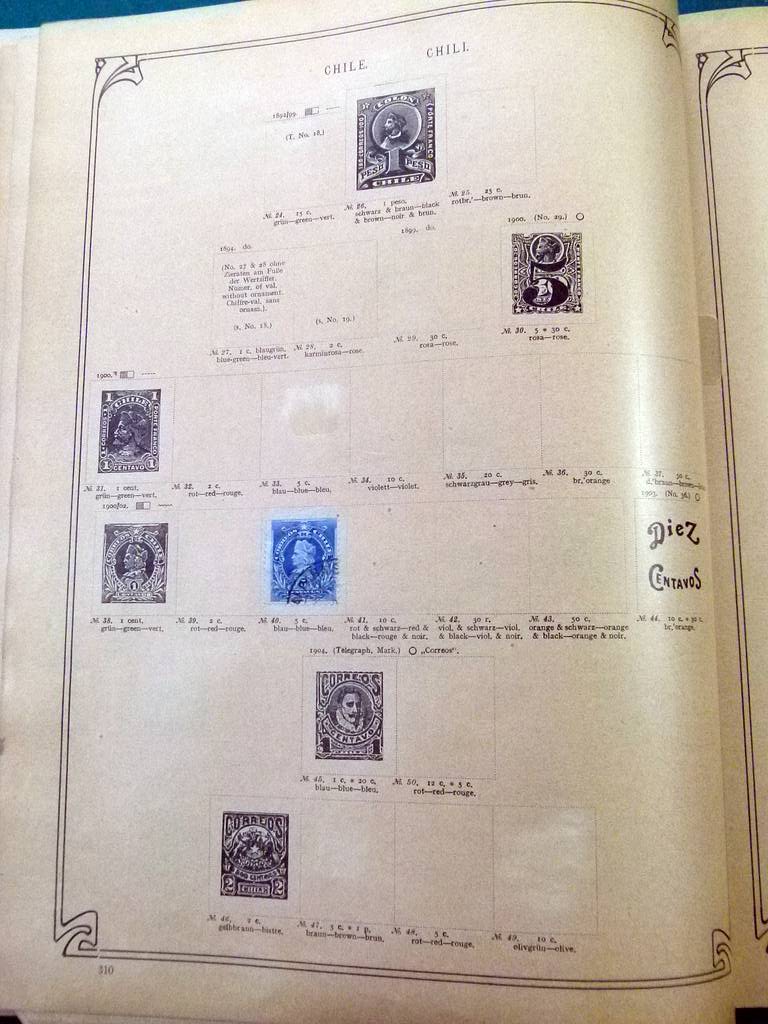 CHILE. CHILI.
1892/99.
(T. No. 18.)
COLON
PORTE FRANCO
1
PESO PESO
CHILE
№. 24. 15 c.
grün—green—vert.
№. 26. 1 peso.
schwarz & braun—black
& brown—noir & brun.
№. 25. 25 c.
rotbr.—brown—brun.
1894. do.
(No. 27 & 28 ohne
Zieraten am Fuße
der Wertziffer.
Numer. of val.
without ornament.
Chiffre-val. sans
ornam.).
(s. No. 18.)
(s. No. 19.)
1899. do.
1900. (No. 29.)
5
№. 27. 1 c. blaugrün.
blue-green—bleu-vert.
№. 28. 2 c.
karminrosa—rose.
№. 29. 30 c.
rosa—rose.
№. 30. 5 * 30 c.
rosa—rose.
1900.
1 CHILE 1
CORREOS
PORTE FRANCO
1 CENTAVO 1
№. 31. 1 cent.
grün—green—vert.
№. 32. 2 c.
rot—red—rouge.
№. 33. 5 c.
blau—blue—bleu.
№. 34. 10 c.
violett—violet.
№. 35. 20 c.
schwarzgrau—grey—gris.
№. 36. 30 c.
br.'orange
№. 37. 50 c.
1900/02.
1903. (No. 36.)
CORREOS CHILE
1
CORREOS CHILE
Diez
Centavos
№. 38. 1 cent.
grün—green—vert.
№. 39. 2 c.
rot—red—rouge.
№. 40. 5 c.
blau—blue—bleu.
№. 41. 10 c.
rot & schwarz—red &
black—rouge & noir.
№. 42. 30 c.
viol. & schwarz—viol.
& black—viol. & noir.
№. 43. 50 c.
orange & schwarz—orange
& black—orange & noir.
№. 44. 10 c. * 30 c.
br.'orange.
1904. (Telegraph. Mark.) „Correos".
CORREOS
CENTAVO
1 1
№. 45. 1 c. * 20 c.
blau—blue—bleu.
№. 50. 12 c. * 5 c.
rot—red—rouge.
CORREOS
DOS CENTAVOS
2 CHILE 2
№. 46. 2 c.
gelbbraun—bistre.
№. 47. 3 c. * 1 p.
braun—brown—brun.
№. 48. 5 c.
rot—red—rouge.
№. 49. 10 c.
olivgrün—olive.
310